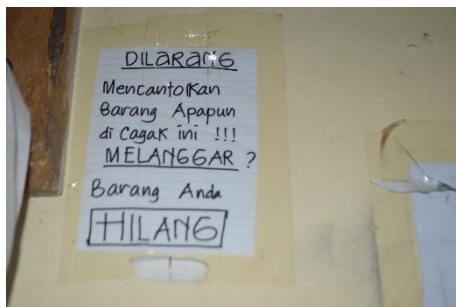 DILARANG
Mencantolkan
Barang Apapun
di Cagak ini !!!
MELANGGAR ?
Barang Anda
HILANG